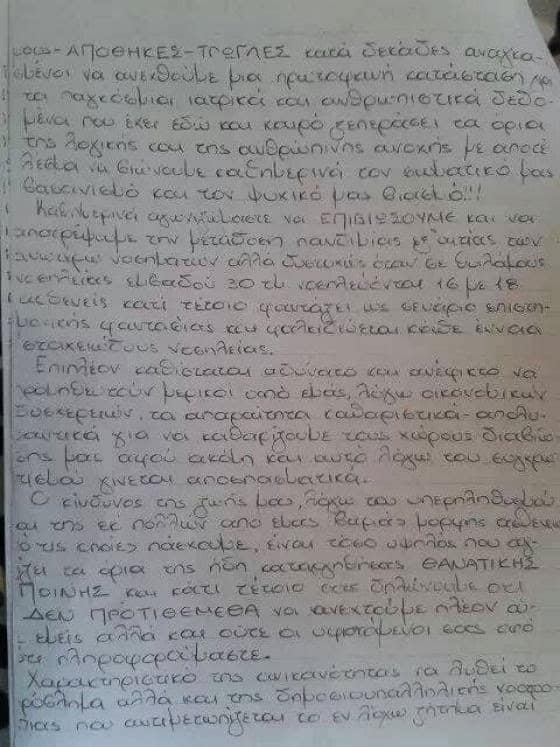 -ΑΠΟΘΗΚΕΣ-ΤΡΩΓΛΕΣ κατά δεκάδες αναγκα-
σμένοι να ανεχθούμε μια πρωτοφανή κατάσταση
τα παγκόσμια ιατρικά και ανθρωπιστικά δεδο-
μένα που έχει εδώ και καιρό ξεπεράσει τα όρια
της λογικής και της ανθρώπινης ανοχής με αποτέ
λεσμα να βιώνουμε καθημερινά τον σωματικό μας
βασανισμό και τον ψυχικό μας βιασμό!!!
Καθημερινά αγωνιζόμαστε να ΕΠΙΒΙΩΣΟΥΜΕ και να
αποτρέψουμε την μετάδοση εξ' αιτίας των
νοσημάτων αλλά δυστυχώς όταν σε θαλάμους
νοσηλείας εμβαδού 30 τμ νοσηλεύονται 16 με 18
ασθενείς κάτι τέτοιο φαντάζει ως σενάριο επιστη-
μονικής φαντασίας και κάθε έννοια
νοσηλείας.
Επιπλέον καθίσταται αδύνατο και ανέφικτο να
προμηθευτούν μερικοί από εμάς, λόγω οικονομικών
δυσχερειών, τα απαραίτητα καθαριστικά-απολυ-
μαντικά για να καθαρίζουμε τους χώρους διαβίω-
σης μας αφού ακόμη και αυτό λόγω του συγχρω-
τισμού γίνεται αποσπασματικά.
Ο κίνδυνος της ζωής μας, λόγω του υπερπληθυσμού
και της εκ πολλών από εμάς βαριάς μορφής ασθενει
ό τις οποίες πάσχουμε, είναι τόσο υψηλός που αγ-
γίζει τα όρια της ήδη καταργηθείσας ΘΑΝΑΤΙΚΗΣ
ΠΟΙΝΗΣ και κάτι τέτοιο σας δηλώνουμε ότι
ΔΕΝ ΠΡΟΤΙΘΕΜΕΘΑ να ανεχτούμε πλέον ού-
τε εμείς αλλά και ούτε οι υφιστάμενοι σας από
ότι πληροφορούμαστε.
Χαρακτηριστικό της ανικανότητας να λυθεί το
πρόβλημα αλλά και της δημοσιουπαλληλικής νοοτρο-
πίας που αντιμετωπίζεται το εν λόγω ζήτημα είναι